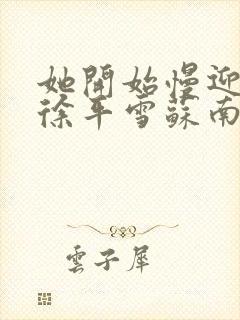 她開始慢迎
徐平雪蘇南
雲子犀